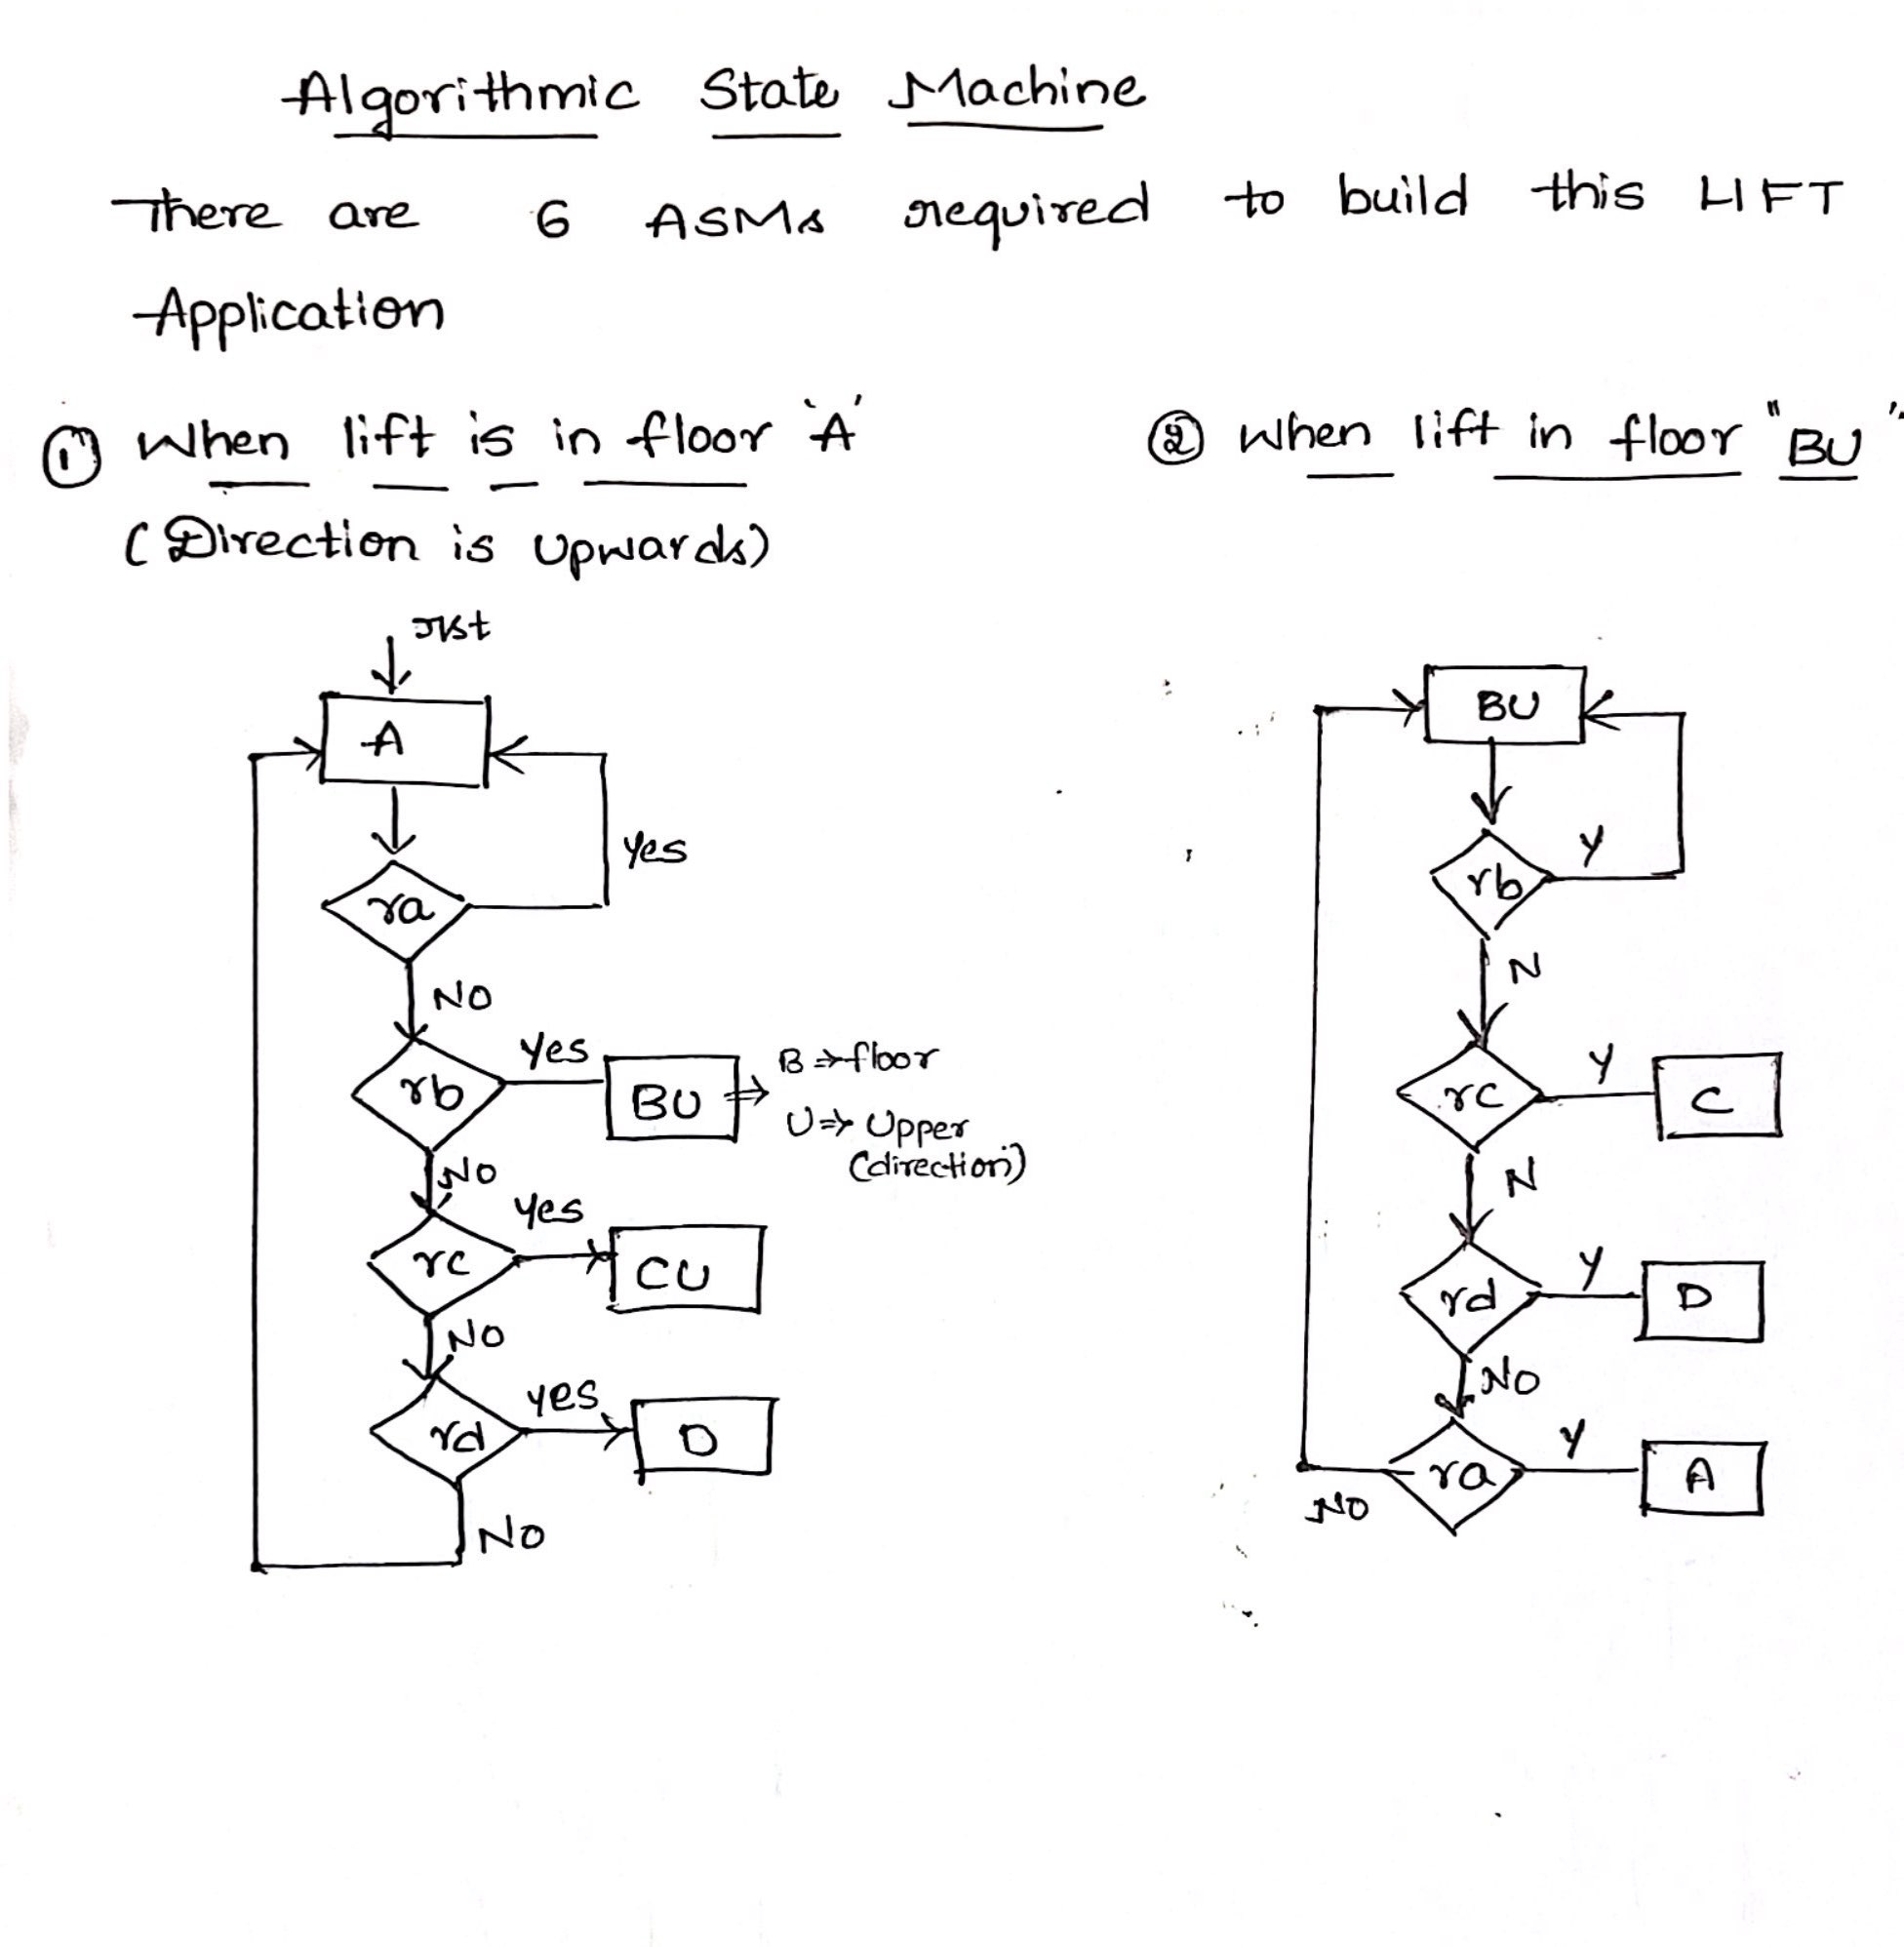 Algorithmic State Machine
There are 6 ASMs required to build this LIFT
Application
① When lift is in floor 'A'
(Direction is Upwards)
rst
A
ra
Yes
NO
rb
Yes
BU
B ⇒ floor
U ⇒ Upper
(direction)
NO
rc
Yes
CU
NO
rd
Yes
D
NO
② When lift in floor "BU"
BU
rb
Y
N
rc
Y
C
N
rd
Y
D
NO
ra
Y
A
NO